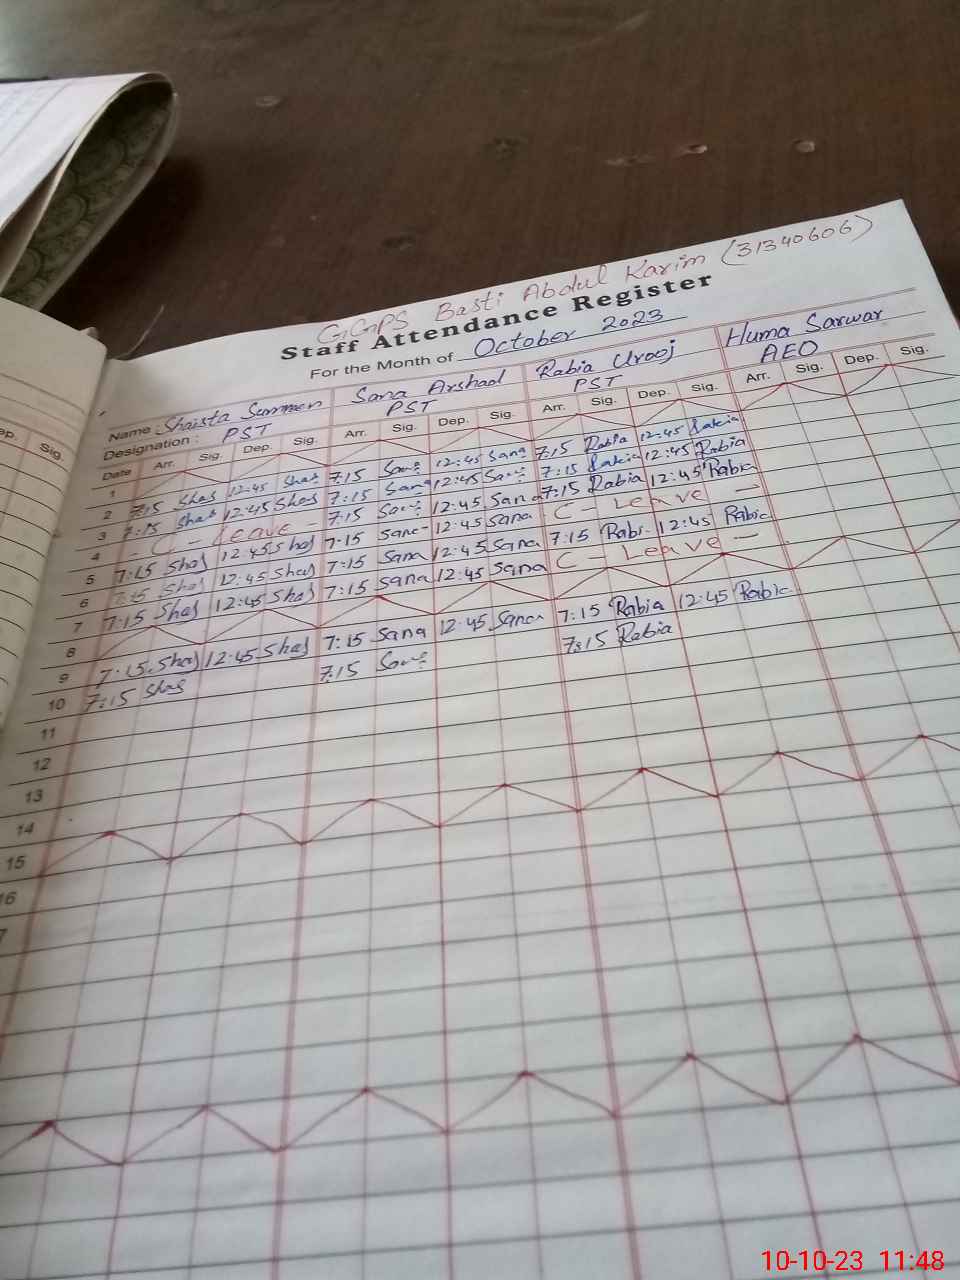 GGPS Basti Abdul Karim (31340606)
Staff Attendance Register
For the Month of October 2023
Name : Shaista Summen Sana Arshad Rabia Urooj Huma Sarwar
Designation : PST PST PST AEO
Date Arr. Sig. Dep. Sig. Arr. Sig. Dep. Sig. Arr. Sig. Dep. Sig. Arr. Sig. Dep. Sig.
1
2 7:15 Shas 12:45 Shas 7:15 Sana 12:45 Sana 7:15 Rabia 12:45 Rabia
3 7:15 Shas 12:45 Shas 7:15 Sana 12:45 Sana 7:15 Rabia 12:45 Rabia
4 - C - Leave 7:15 Sana 12:45 Sana 7:15 Rabia 12:45 Rabia
5 7:15 Shas 12:45 Shas 7:15 Sana 12:45 Sana C - Leave -
6 7:15 Shas 12:45 Shas 7:15 Sana 12:45 Sana 7:15 Rabi 12:45 Rabia
7 7:15 Shas 12:45 Shas 7:15 Sana 12:45 Sana C - Leave -
8
9 7:15 Shas 12:45 Shas 7:15 Sana 12:45 Sana 7:15 Rabia 12:45 Rabia
10 7:15 Shas 7:15 Sana 7:15 Rabia
11
12
13
14
15
16
7
ep. Sig.
10-10-23 11:48